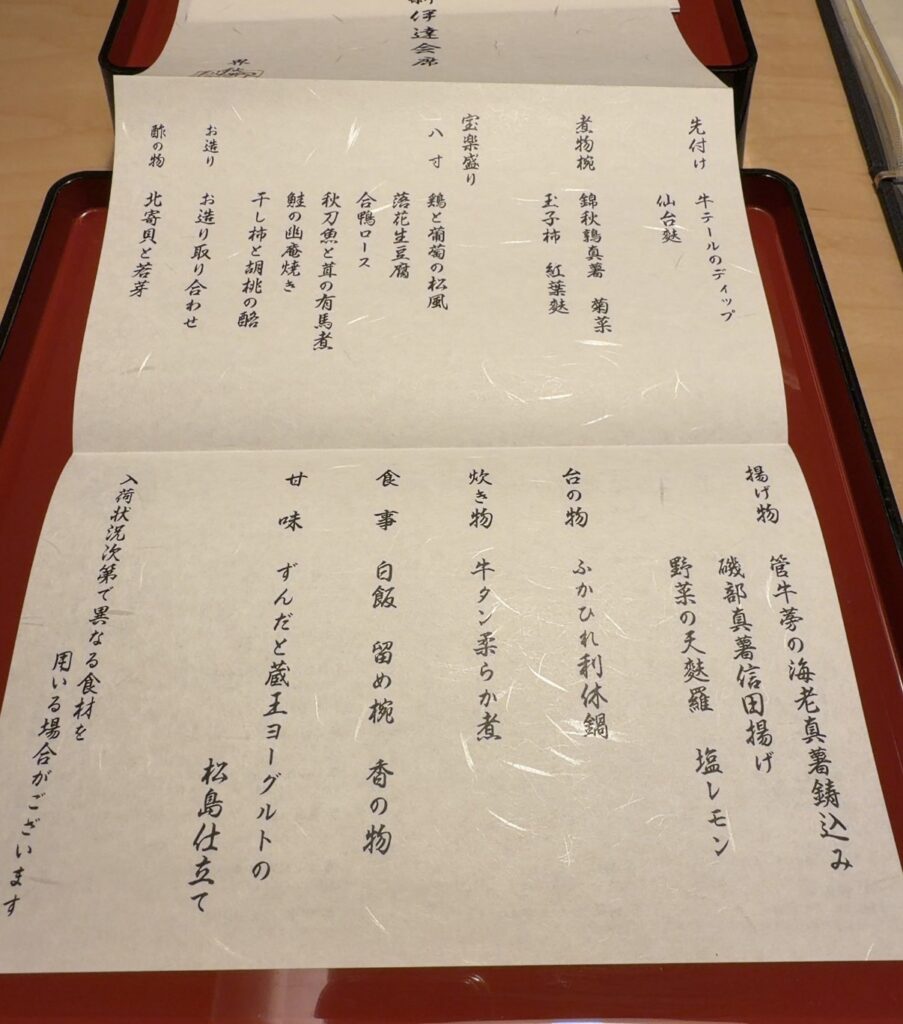 伊達会席
先付け
牛テールのディップ
仙台麩
煮物椀
錦秋鶉真薯 菊菜
玉子柿 紅葉麩
宝楽盛り
八寸
鶏と葡萄の松風
落花生豆腐
合鴨ロース
秋刀魚と茸の有馬煮
鮭の幽庵焼き
干し柿と胡桃の酪
お造り
お造り取り合わせ
酢の物
北寄貝と若芽
揚げ物
管牛蒡の海老真薯鋳込み
磯部真薯信田揚げ
野菜の天麩羅 塩レモン
台の物
ふかひれ利休鍋
炊き物
牛タン柔らか煮
食事
白飯 留め椀 香の物
甘味
ずんだと蔵王ヨーグルトの
松島仕立て
入荷状況次第で異なる食材を
用いる場合がございます